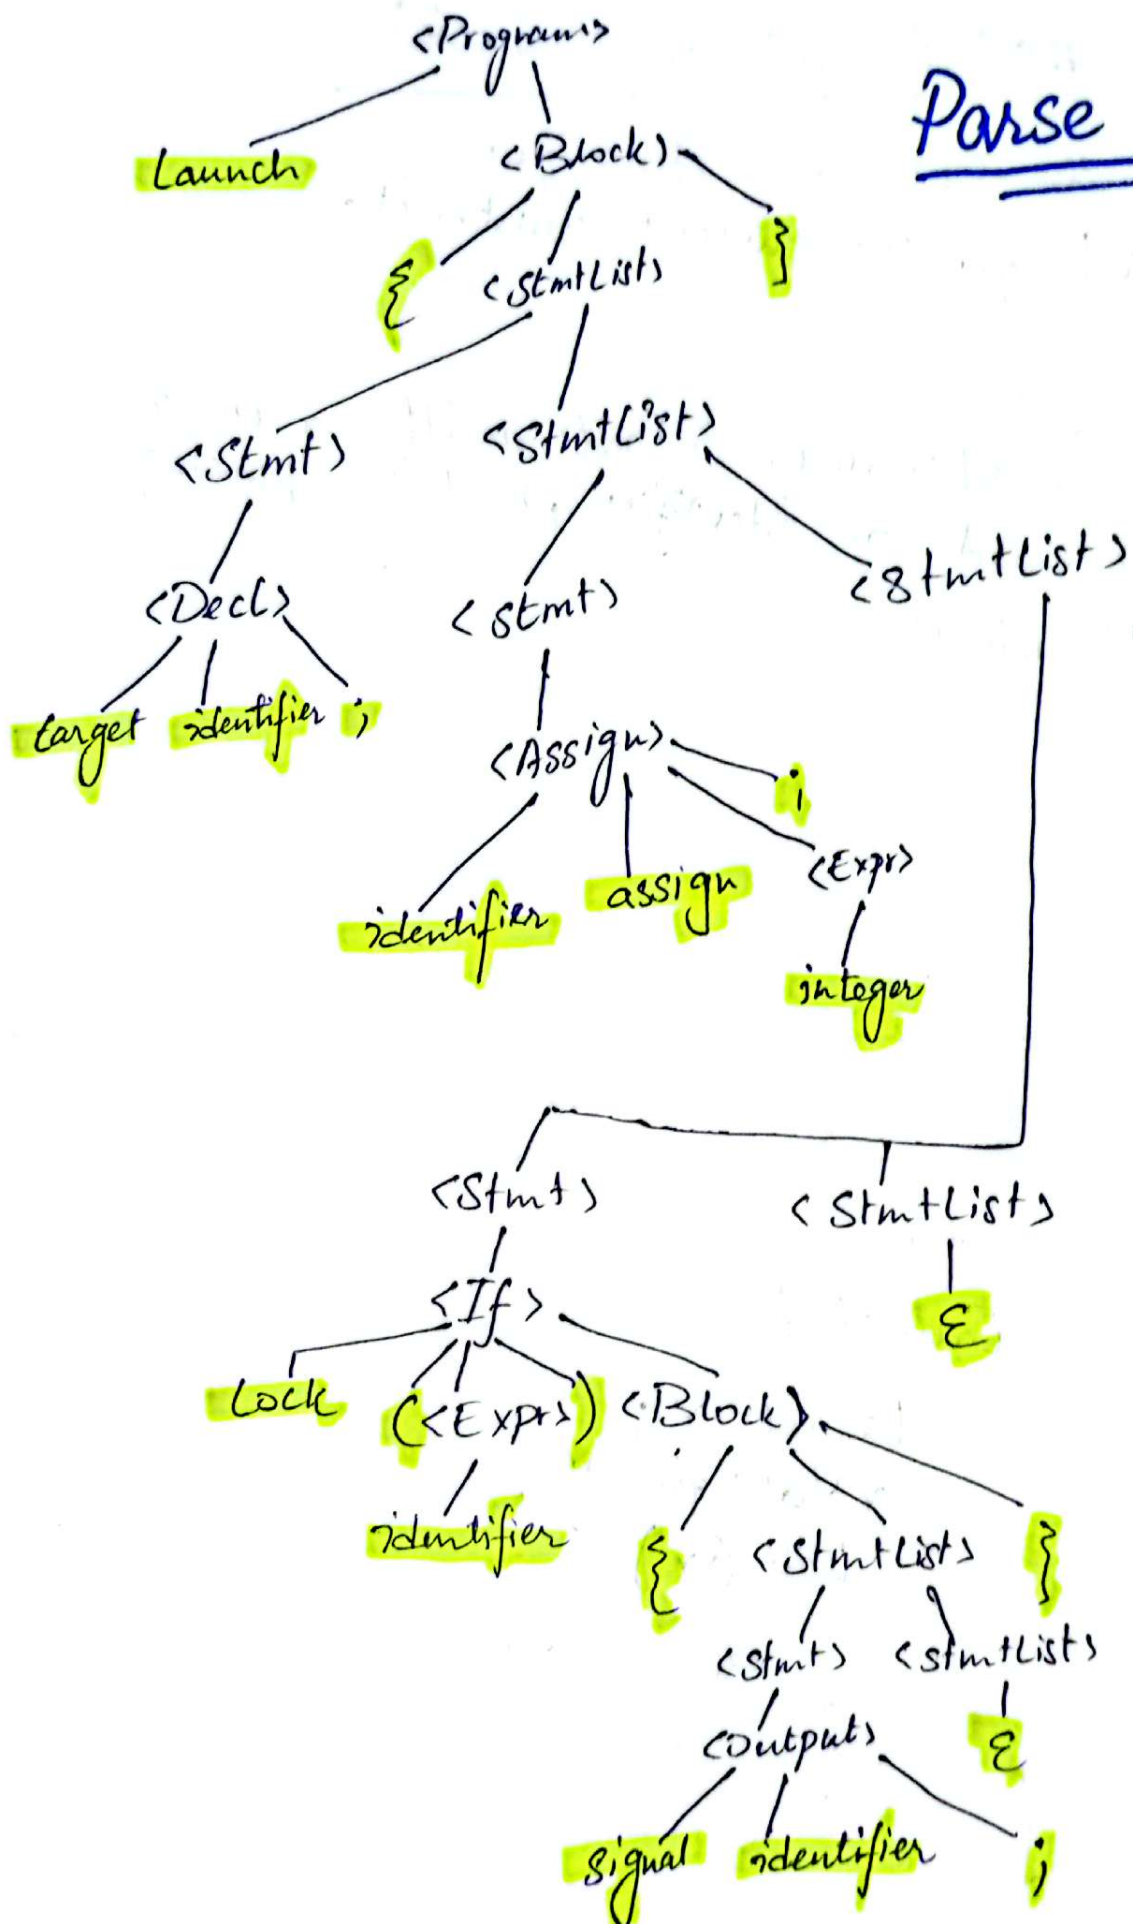 <Program>
Parse
Launch <Block>
{ <StmtList> }
<Stmt> <StmtList>
<Decl> <Stmt> <StmtList>
target identifier ;
<Assign> ;
identifier assign <Expr>
integer
<Stmt> <StmtList>
<If> ε
lock (<Expr>) <Block>
identifier { <StmtList> }
<Stmt> <StmtList>
<Output> ε
signal identifier ;